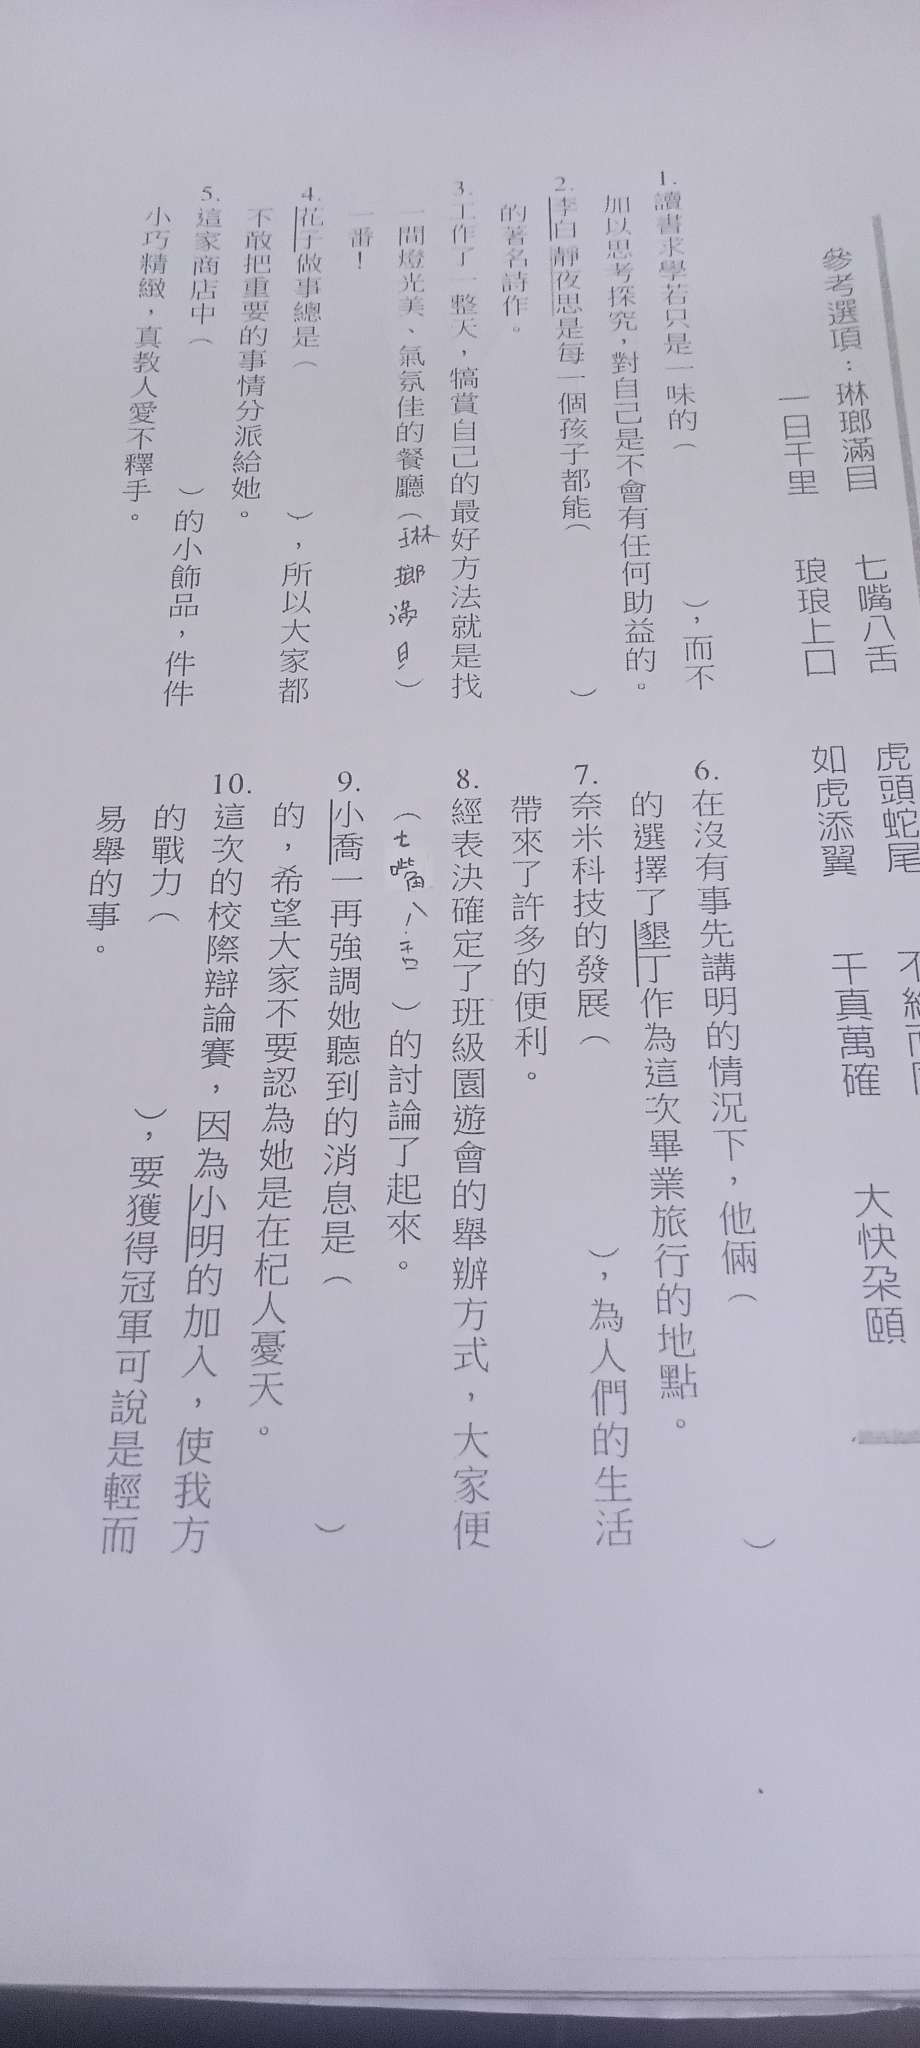 參考選項：琳瑯滿目　七嘴八舌　虎頭蛇尾　大快朵頤
一日千里　琅琅上口　如虎添翼　千真萬確
1.讀書求學若只是一味的（　　　），而不
加以思考探究，對自己是不會有任何助益的。
2.李白靜夜思是每一個孩子都能（　　　）
的著名詩作。
3.工作了一整天，犒賞自己的最好方法就是找
一間燈光美、氣氛佳的餐廳（琳瑯滿目）
一番！
4.花子做事總是（　　　），所以大家都
不敢把重要的事情分派給她。
5.這家商店中（　　　）的小飾品，件件
小巧精緻，真教人愛不釋手。
6.在沒有事先講明的情況下，他倆（　　　）
的選擇了墾丁作為這次畢業旅行的地點。
7.奈米科技的發展（　　　），為人們的生活
帶來了許多的便利。
8.經表決確定了班級園遊會的舉辦方式，大家便
（七嘴八舌）的討論了起來。
9.小喬一再強調她聽到的消息是（　　　）
的，希望大家不要認為她是在杞人憂天。
10.這次的校際辯論賽，因為小明的加入，使我方
的戰力（　　　），要獲得冠軍可說是輕而
易舉的事。